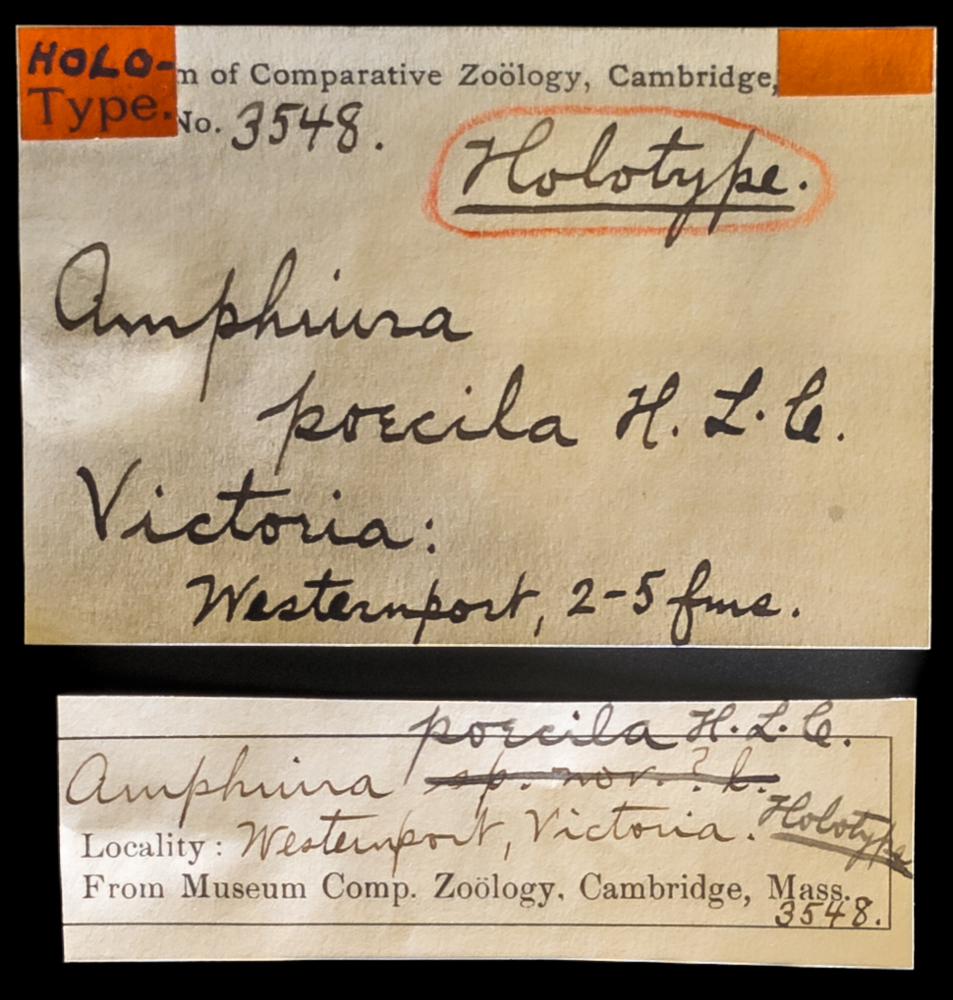 HOLO-
Type.
m of Comparative Zoölogy, Cambridge,
No. 3548.
Holotype.
Amphiura
poecila H. L. C.
Victoria:
Westernport, 2-5 fms.
poecila H. L. C.
Amphiura sp. nov.? b.
Holotype
Locality: Westernport, Victoria.
From Museum Comp. Zoölogy, Cambridge, Mass.
3548.